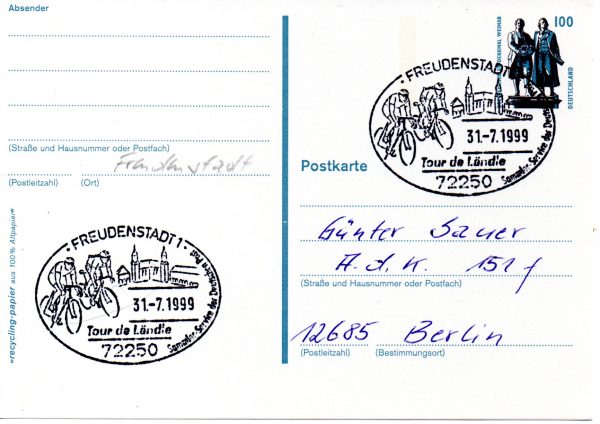 Absender
(Straße und Hausnummer oder Postfach)
Freudenstadt
(Postleitzahl) (Ort)
»recycling-papier aus 100% Altpapier«
FREUDENSTADT 1
31-7.1999
Tour de Ländle
72250
Sammler-Service der Deutschen Post
100
DEUTSCHLAND
FREUDENSTADT
31-7.1999
Tour de Ländle
72250
Sammler-Service der Deutschen
Postkarte
Günter Sauer
A.d.K. 151 f
(Straße und Hausnummer oder Postfach)
12685 Berlin
(Postleitzahl) (Bestimmungsort)